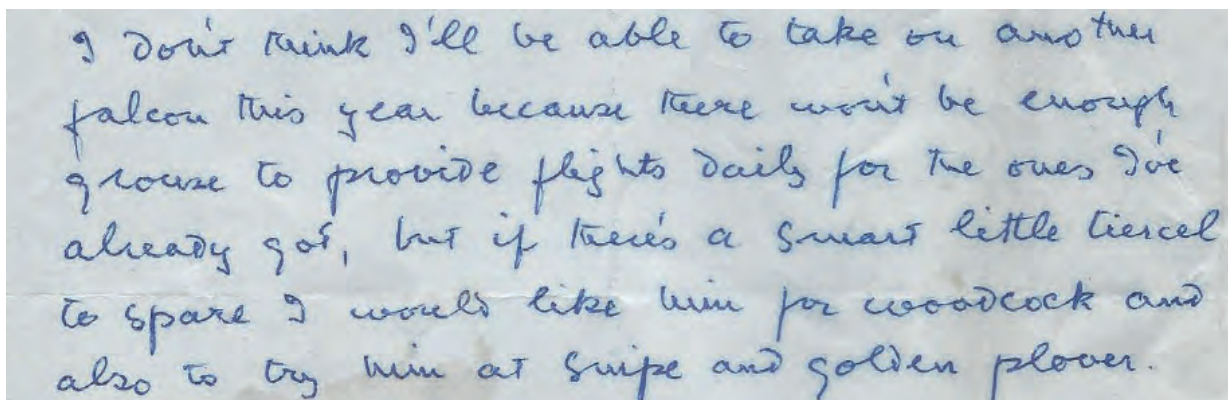 I don't think I'll be able to take on another
falcon this year because there won't be enough
grouse to provide flights daily for the ones I've
already got, but if there's a smart little tiercel
to spare I would like him for woodcock and
also to try him at snipe and golden plover.